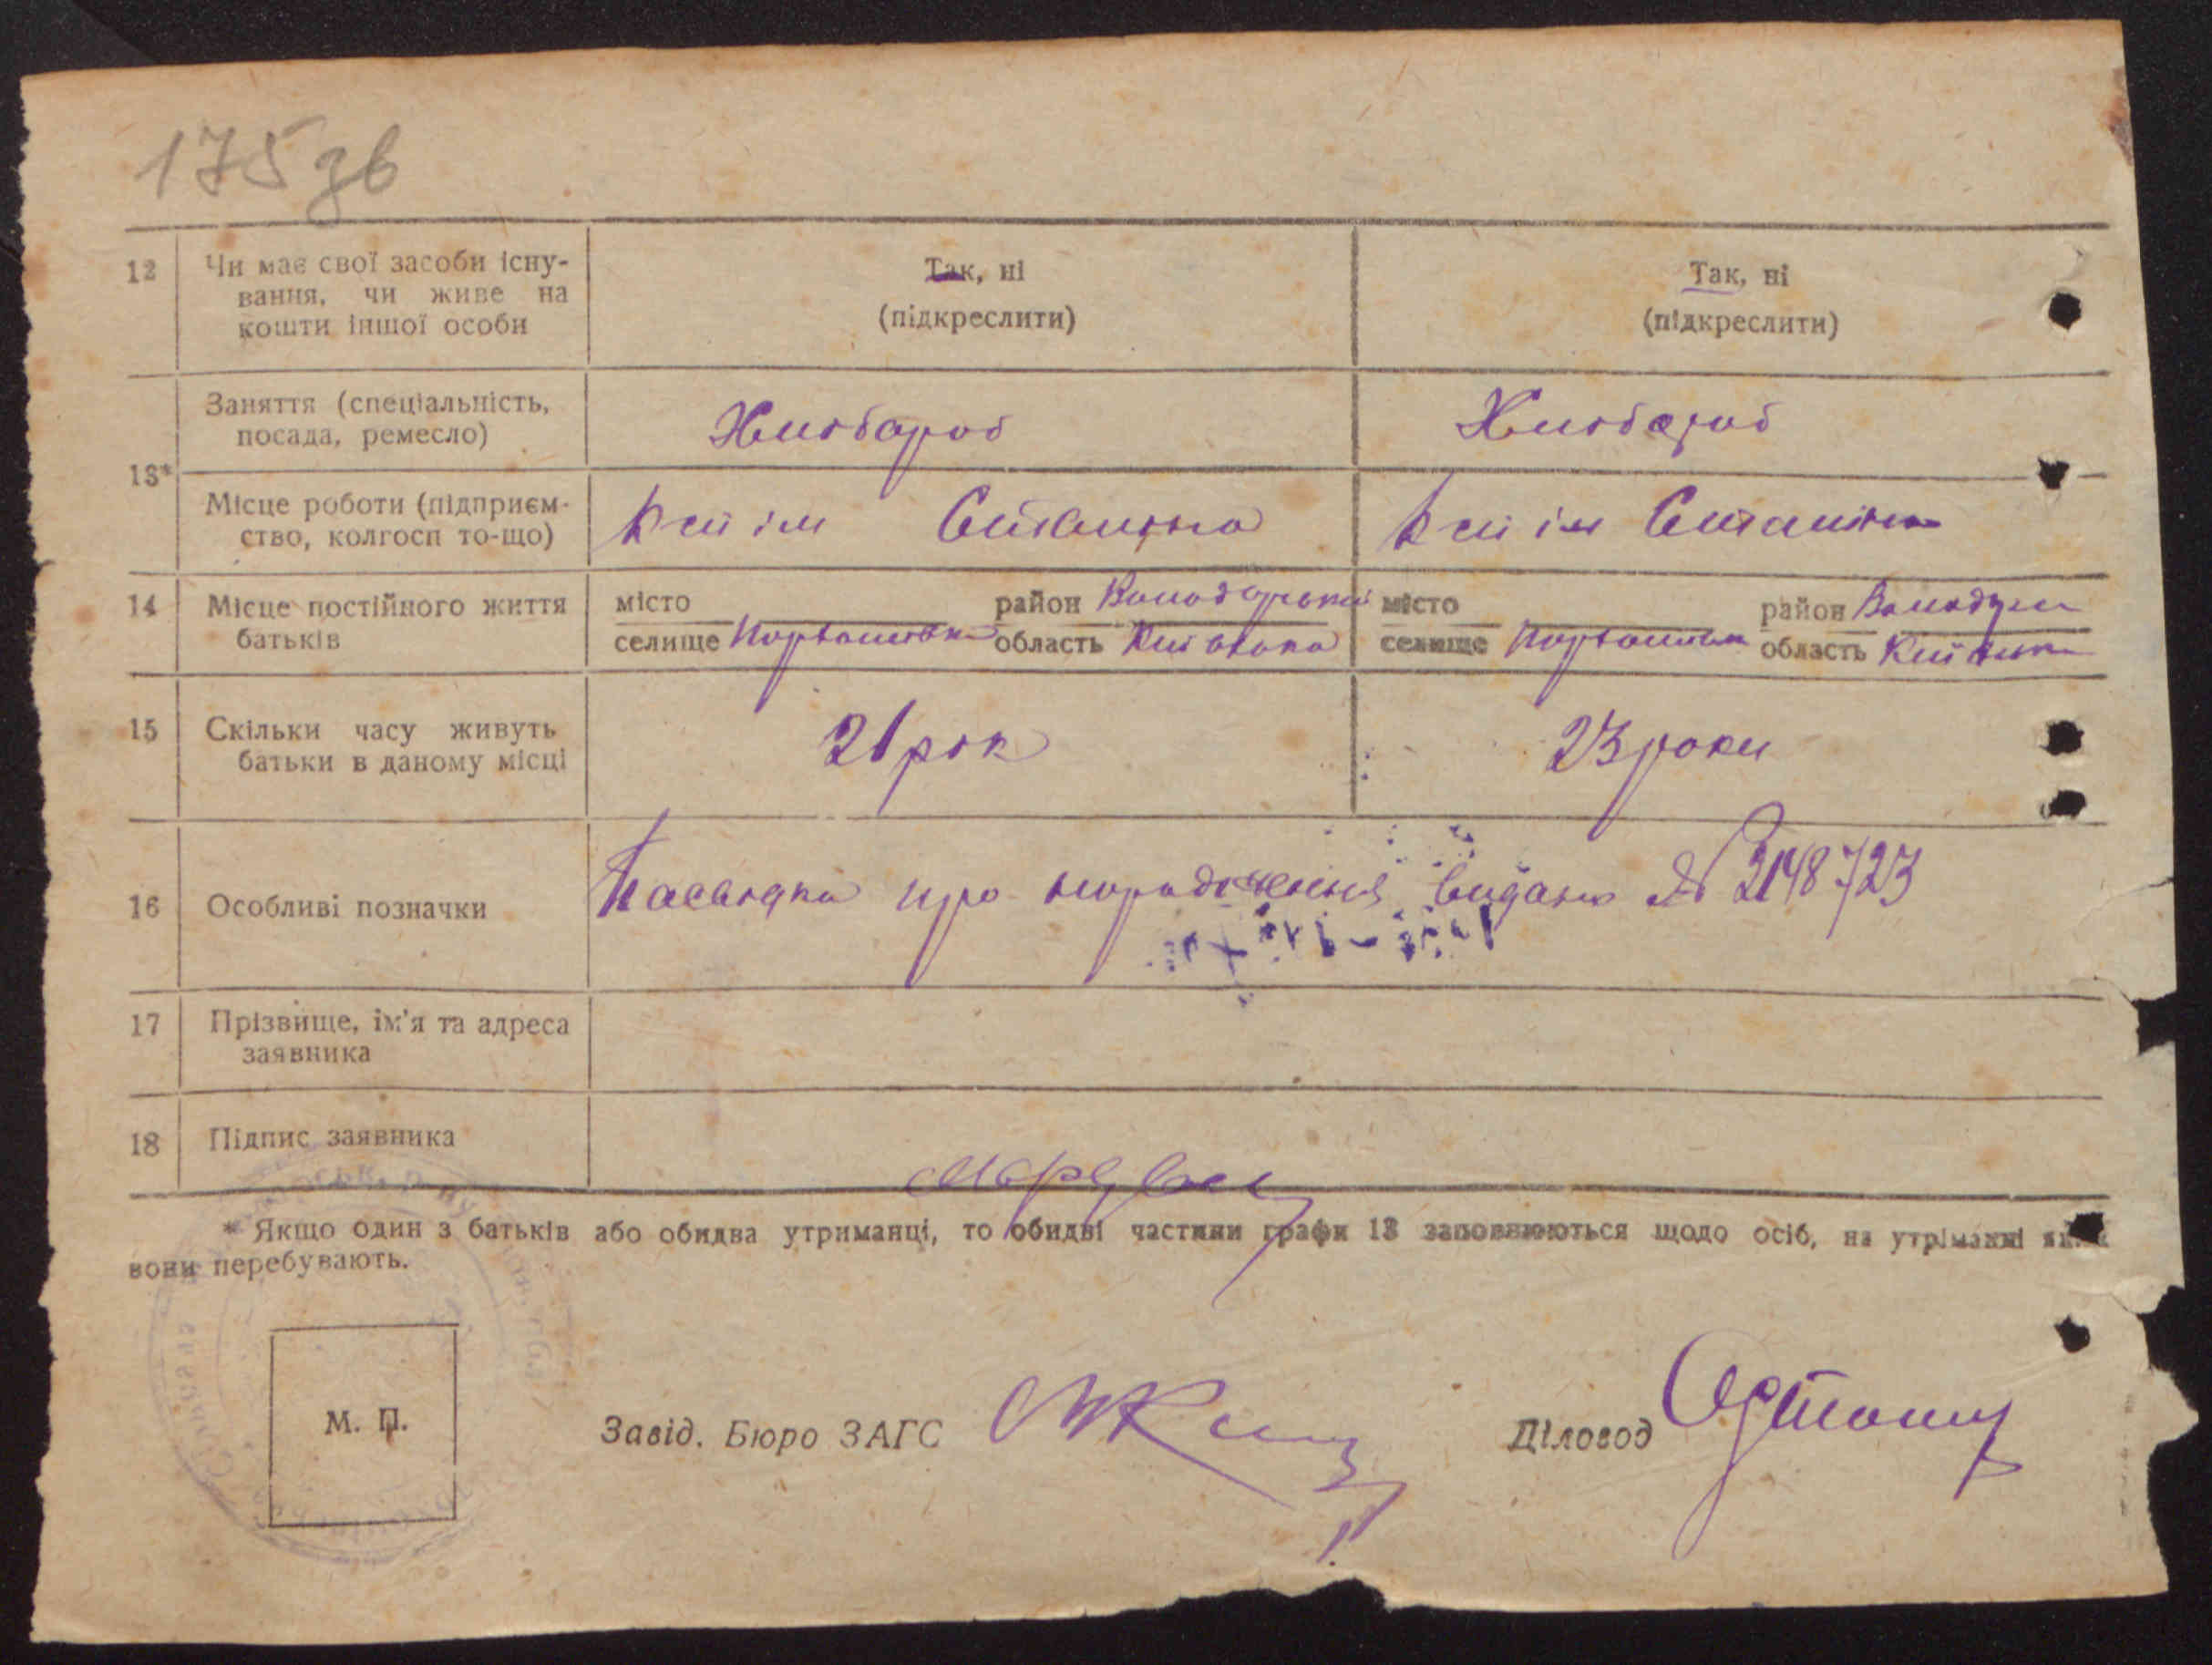 175 зв
12 Чи має свої засоби існу-
вання, чи живе на
кошти іншої особи
Так, ні
(підкреслити)
Так, ні
(підкреслити)
13*
Заняття (спеціальність,
посада, ремесло)
Хлібороб
Хлібороб
Місце роботи (підприєм-
ство, колгосп то-що)
ім Сталіна
ім Сталіна
14 Місце постійного життя
батьків
місто
селище
район Володарський
область Київська
місто
селище
район
область Київська
15 Скільки часу живуть
батьки в даному місці
21 рік
23 роки
16 Особливі позначки
про народження видано № 3148723
17 Прізвище, ім'я та адреса
заявника
18 Підпис заявника
* Якщо один з батьків або обидва утриманці, то обидві частини графи 13 заповнюються щодо осіб, на утріманні яких
вони перебувають.
М. П.
Завід. Бюро ЗАГС
Діловод